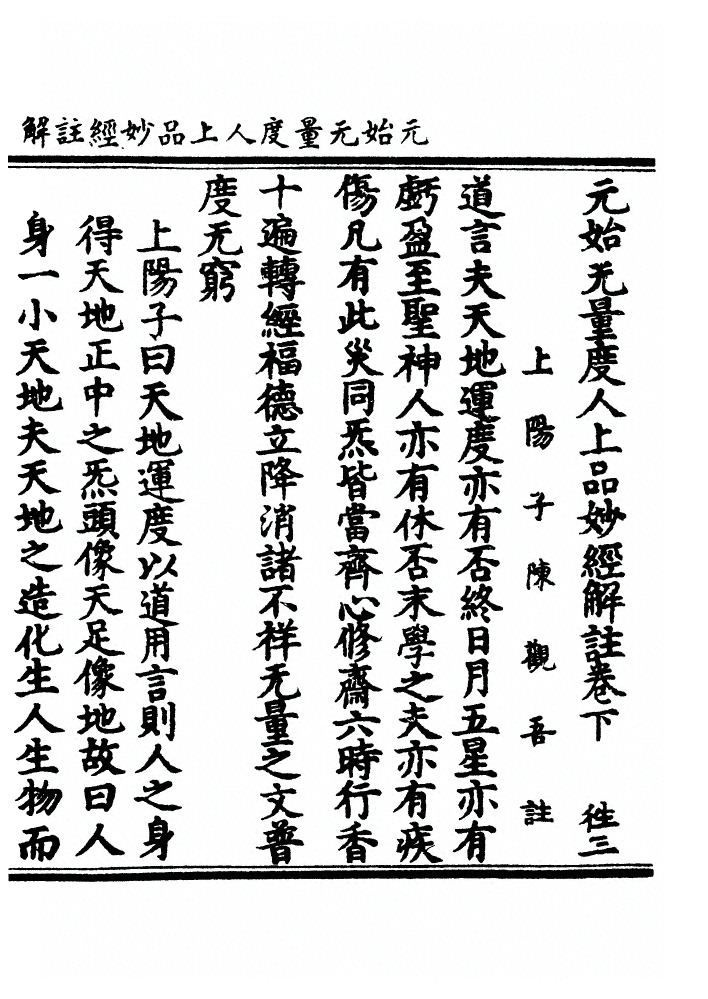 元始无量度人上品妙經註解
元始无量度人上品妙經解註卷下 徃三
上陽子陳觀吾註
道言夫天地運度亦有否終日月五星亦有
虧盈至聖神人亦有休否末學之夫亦有疾
傷凡有此災同炁皆當齊心修齋六時行香
十遍轉經福德立降消諸不祥无量之文普
度无窮
上陽子曰天地運度以道用言則人之身
得天地正中之炁頭像天足像地故曰人
身一小天地夫天地之造化生人生物而